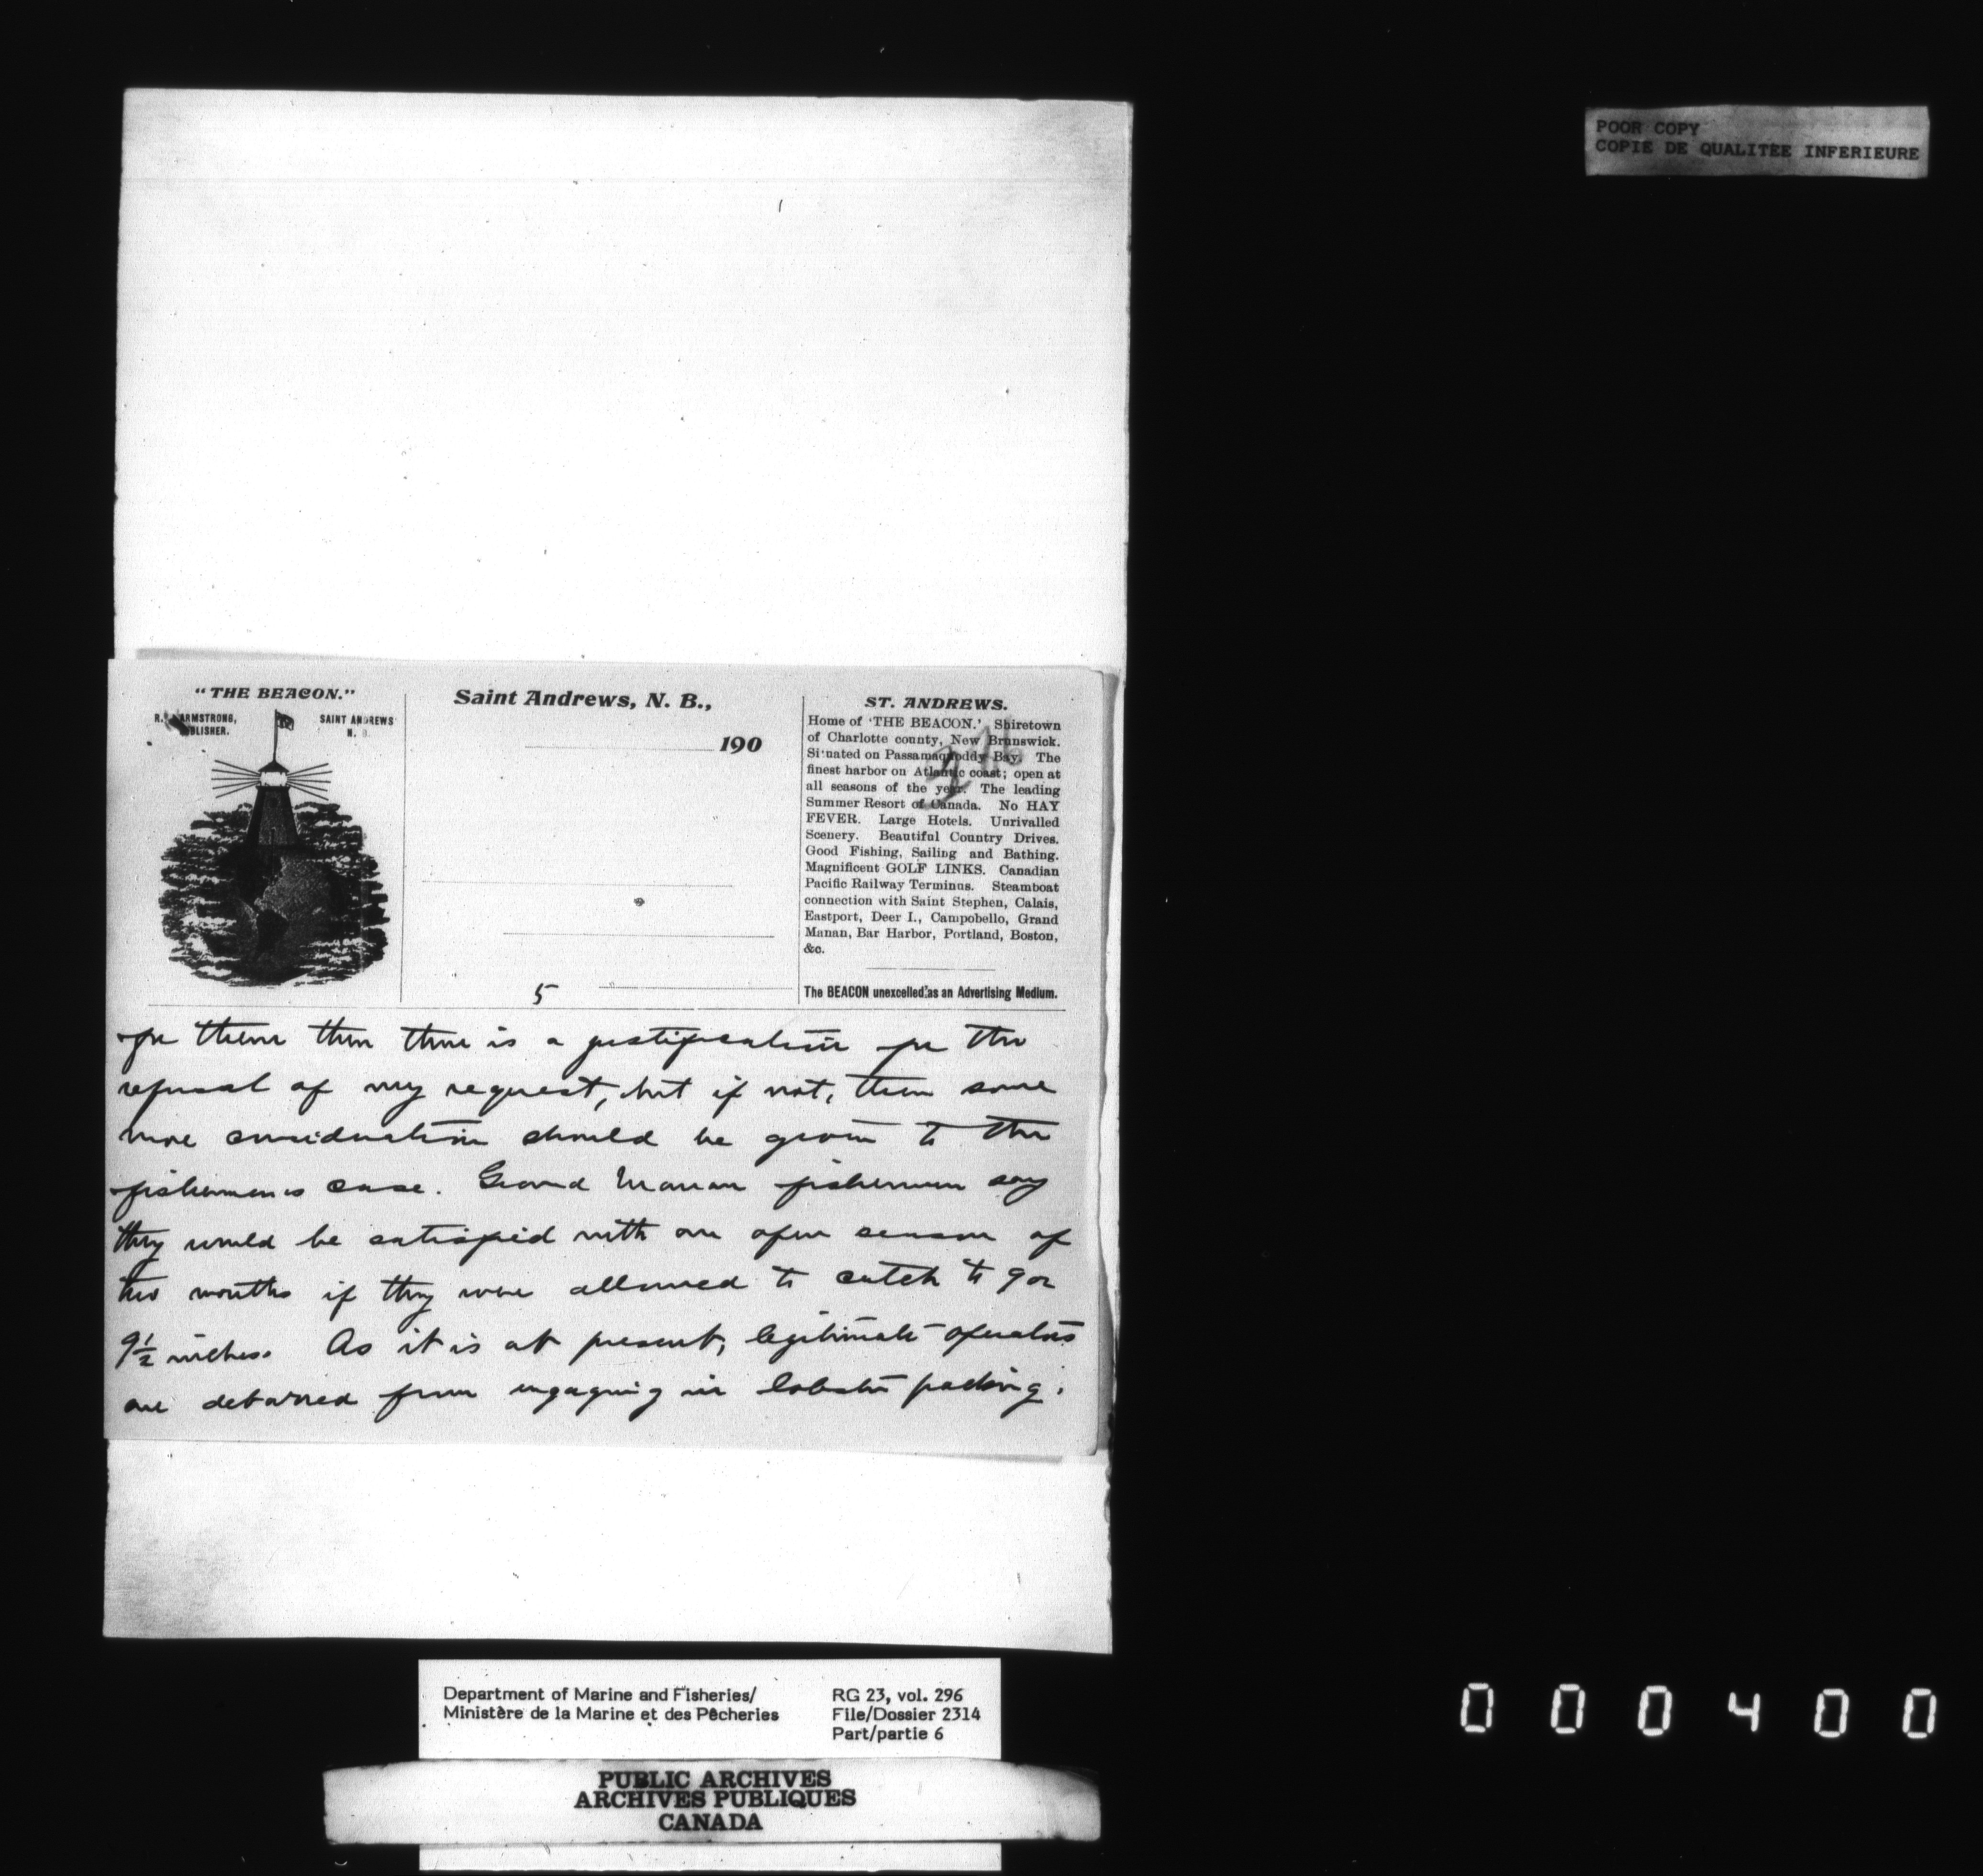 POOR COPY
COPIE DE QUALITEE INFERIEURE
"THE BEACON."
R. ARMSTRONG,
BLISHER.
SAINT ANDREWS
N. B.
Saint Andrews, N. B.,
190
ST. ANDREWS.
Home of 'THE BEACON.' Shiretown
of Charlotte county, New Brunswick.
Situated on Passamaquoddy Bay. The
finest harbor on Atlantic coast; open at
all seasons of the year. The leading
Summer Resort of Canada. No HAY
FEVER. Large Hotels. Unrivalled
Scenery. Beautiful Country Drives.
Good Fishing, Sailing and Bathing.
Magnificent GOLF LINKS. Canadian
Pacific Railway Terminus. Steamboat
connection with Saint Stephen, Calais,
Eastport, Deer I., Campobello, Grand
Manan, Bar Harbor, Portland, Boston,
&c.
The BEACON unexcelled as an Advertising Medium.
5
for them then there is a justification for the
refusal of my request, but if not, then some
more consideration should be given to the
fishermen's case. Grand Manan fishermen say
they would be satisfied with an open season of
two months if they were allowed to catch to 9 or
9½ inches. As it is at present, legitimate operators
are debarred from engaging in lobster packing,
Department of Marine and Fisheries/
Ministère de la Marine et des Pêcheries
RG 23, vol. 296
File/Dossier 2314
Part/partie 6
PUBLIC ARCHIVES
ARCHIVES PUBLIQUES
CANADA
000400